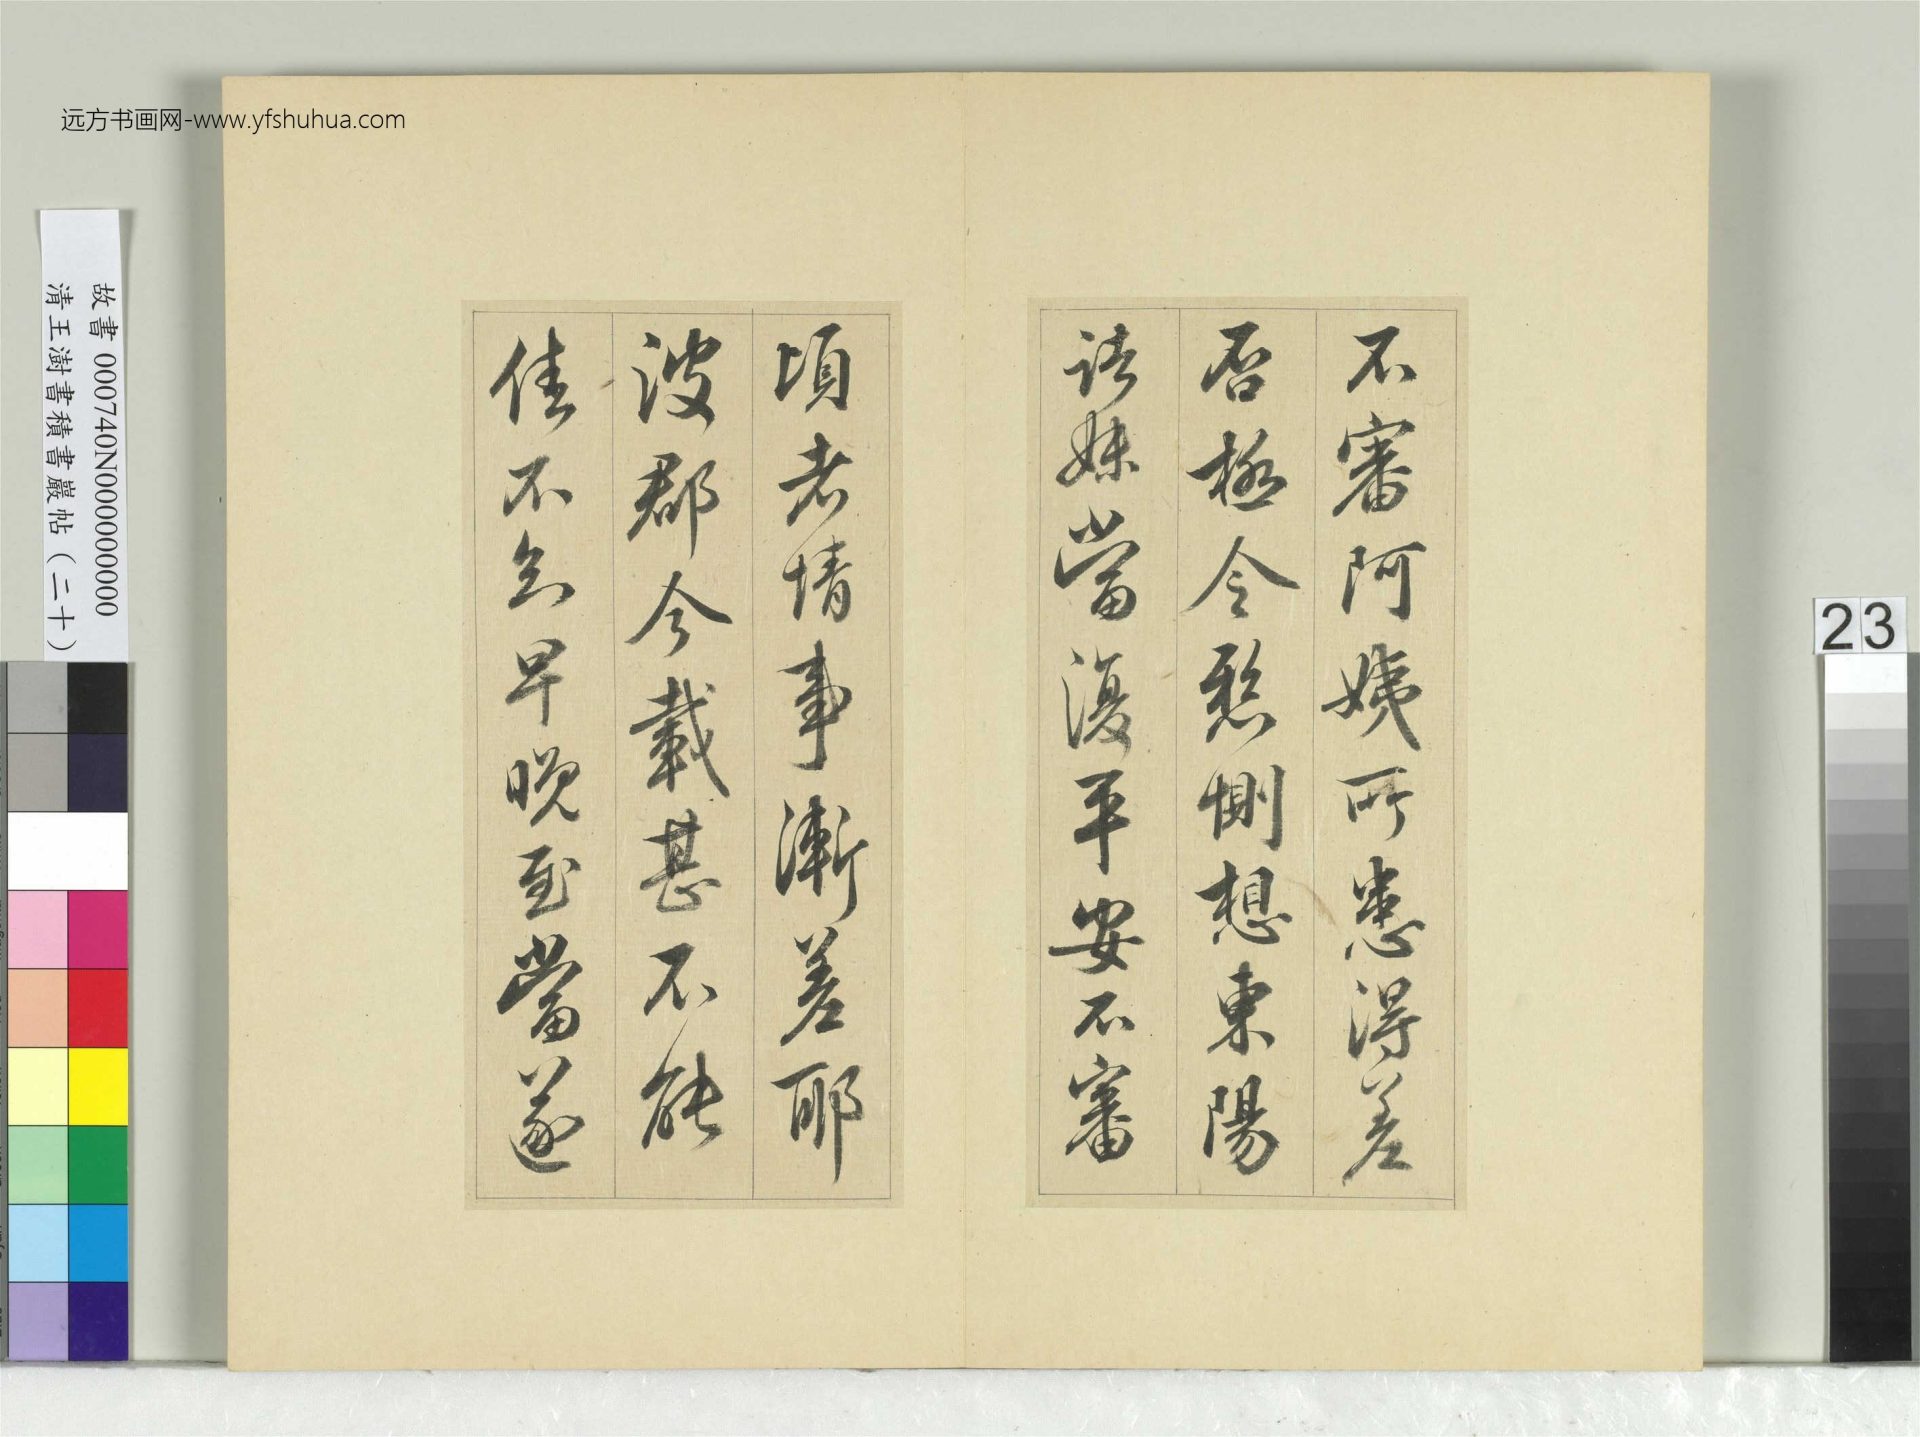 远方书画网-www.yfshuhua.com
故書 000740N000000000
清王澍書積書巖帖（二十）
23
不審阿姨所患得差
否極令愁惻想東陽
諸妹當復平安不審
頃者情事漸差耶
汝郡今載甚不能
佳不知早晚至當遂